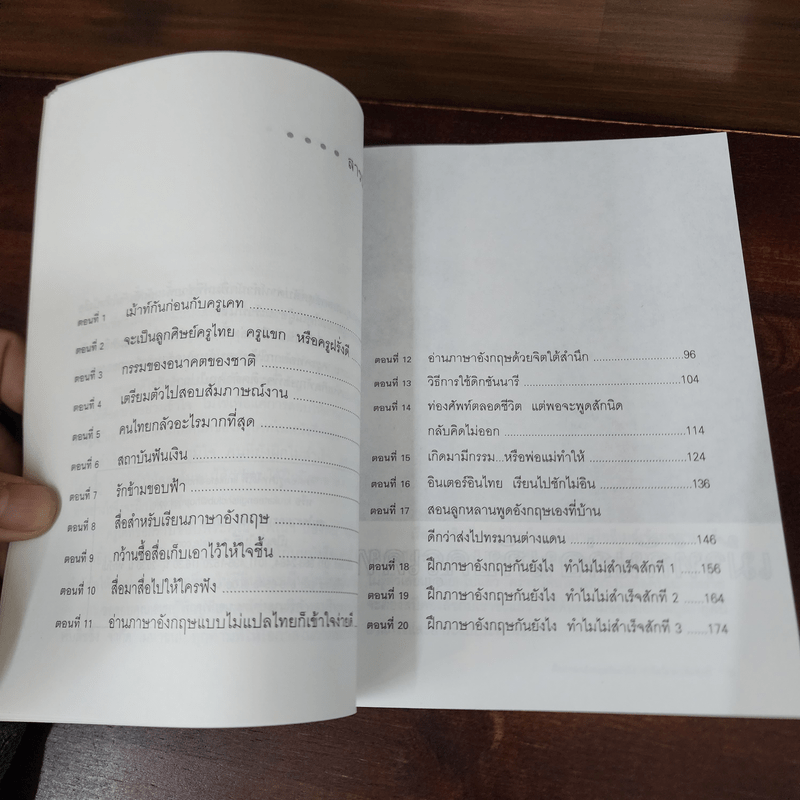 ตอนที่ 1 เม้าท์กันก่อนกับครูเคท
ตอนที่ 2 จะเป็นลูกศิษย์ครูไทย ครูแขก หรือครูฝรั่งดี
ตอนที่ 3 กรรมของอนาคตของชาติ
ตอนที่ 4 เตรียมตัวไปสอบสัมภาษณ์งาน
ตอนที่ 5 คนไทยกลัวอะไรมากที่สุด
ตอนที่ 6 สถาบันฟันเงิน
ตอนที่ 7 รักข้ามขอบฟ้า
ตอนที่ 8 สื่อสำหรับเรียนภาษาอังกฤษ
ตอนที่ 9 กว้านซื้อสื่อเก็บเอาไว้ให้ใจชื้น
ตอนที่ 10 สื่อมาสื่อไปให้ใครฟัง
ตอนที่ 11 อ่านภาษาอังกฤษแบบไม่แปลไทยก็เข้าใจง่ายดี
ตอนที่ 12 อ่านภาษาอังกฤษด้วยจิตใต้สำนึก 96
ตอนที่ 13 วิธีการใช้ดิกชันนารี 104
ตอนที่ 14 ท่องศัพท์ตลอดชีวิต แต่พอจะพูดสักนิด
กลับคิดไม่ออก 114
ตอนที่ 15 เกิดมามีกรรม...หรือพ่อแม่ทำให้ 124
ตอนที่ 16 อินเตอร์อินไทย เรียนไปชักไม่อิน 136
ตอนที่ 17 สอนลูกหลานพูดอังกฤษเองที่บ้าน
ดีกว่าส่งไปทรมานต่างแดน 146
ตอนที่ 18 ฝึกภาษาอังกฤษกันยังไง ทำไมไม่สำเร็จสักที 1 156
ตอนที่ 19 ฝึกภาษาอังกฤษกันยังไง ทำไมไม่สำเร็จสักที 2 164
ตอนที่ 20 ฝึกภาษาอังกฤษกันยังไง ทำไมไม่สำเร็จสักที 3 174